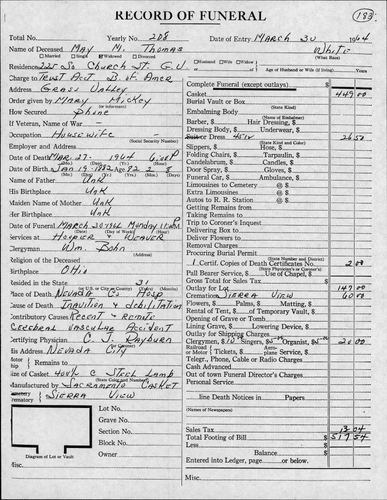 RECORD OF FUNERAL
183
Total No. Yearly No. 208 Date of Entry MARCH 30 1964
Name of Deceased MAY M. Thomas White
Married Single Widowed Divorced (What Race)
Residence 225 So Church St. G.V. Husband Widow Age of Husband or Wife (if living)
Charge to TRUST ACT. B. of Amer
Address GRASS VALLEY
Order given by MARY Hickey
How Secured phone
If Veteran, Name of War
Occupation HOUSEWIFE
(Social Security Number)
Employer and Address
Date of Death MAR. 27- 1964 6:00 P
Date of Birth JAN 19-1882 Age 82 2 8
Name of Father UNK
His Birthplace UNK
Maiden Name of Mother UNK
Her Birthplace UNK
Date of Funeral MARCH 30 1964 Monday 1:00 PM
Services at HOOPER & WEAVER
Clergyman Wm. Bohn
(Address)
Religion of the Deceased
Birthplace OHIO
Resided in the State 31
Place of Death NEVADA C. Hosp
Cause of Death INANITION & debilitation
Contributory Causes RECENT & REMOTE
CEREBRAL VASCULAR ACCIDENT
Certifying Physician C. J. RAYBURN
His Address NEVADA CITY
Motor Remains to
Ship
Size of Casket
Manufactured by SACRAMENTO CASKET
Cemetery
Crematory SIERRA VIEW
Lot No.
Grave No.
Section No.
Block No.
Owner
Diagram of Lot or Vault
Misc.
Complete Funeral (except outlays) $
Casket 449 00
Burial Vault or Box
(State Kind)
Embalming Body
(Name of Embalmer)
Barber, $ Hair Dressing, $
Dressing Body, $ Underwear, $
Dress 26 50
(State Kind and Color)
Slippers, $ Hose, $
Folding Chairs, $ Tarpaulin, $
Candelabrum, $ Candles, $
Door Spray, $ Gloves, $
Funeral Car, $ Ambulance, $
Limousines to Cemetery @ $
Extra Limousines @ $
Autos to R. R. Station @ $
Getting Remains from
Taking Remains to
Trip to Coroner's Inquest
Delivering Box to
Deliver Flowers to
Removal Charges
Procuring Burial Permit
(State Number and District)
1 Certif. Copies of Death Certificates No. 2 00
(State Physician's or Coroner's)
Pall Bearer Service, $ Use of Chapel, $
Outlay for Lot $ 149 00
Cremation SIERRA VIEW 60 00
Flowers, $ Palms, $ Matting, $
Rental of Tent, $ of Temporary Vault, $
Opening of Grave or Tomb
Lining Grave, $ Lowering Device, $
Outlay for Shipping Charges
Clergyman, $10 Singers, $5 Organist, $
Railroad Aero-
or Motor Tickets, $ plane Service, $
Telegr., Phone, Cable or Radio Charges
Cash Advanced
Out of town Funeral Director's Charges
Personal Service
line Death Notices in Papers
(Names of Newspapers)
Sales Tax
Total Footing of Bill $ 517 54
Less
Balance $
Entered into Ledger, page or below.
Misc.